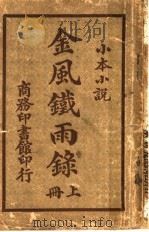 小本小説
金風鐵雨錄
上冊
商務印書館印行
mtoou.info